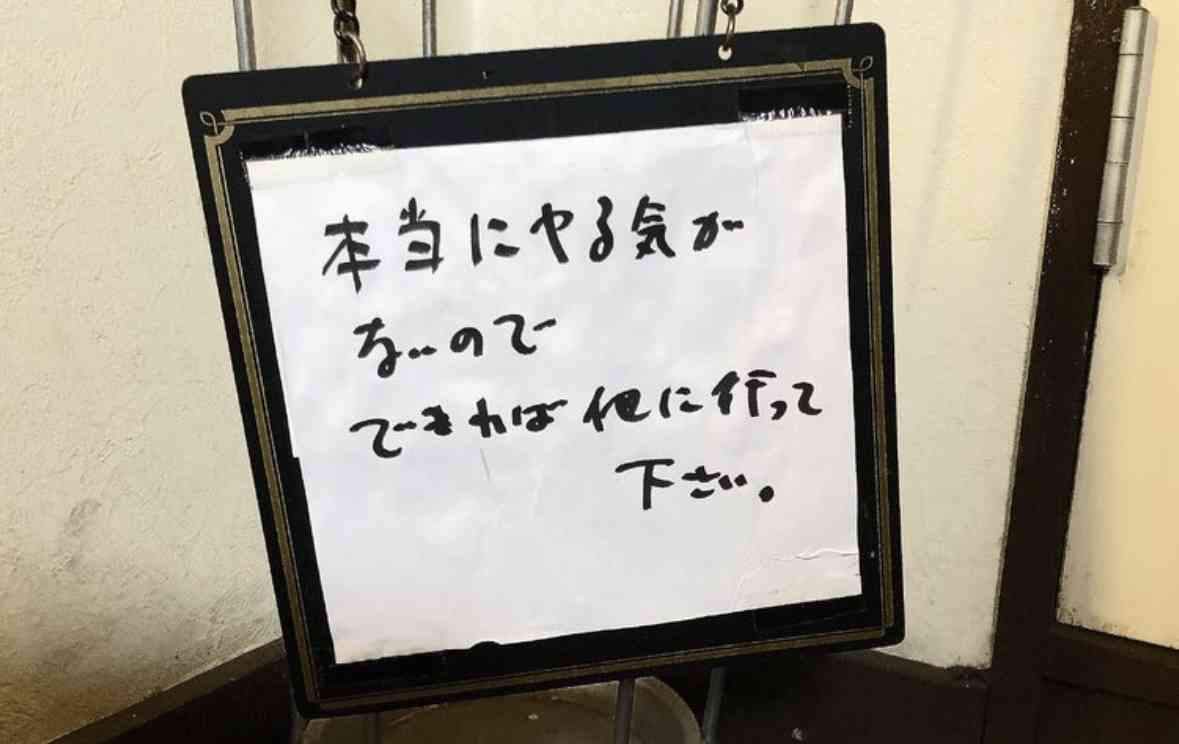 本当にやる気が
ないので
できれば他に行って
下さい。